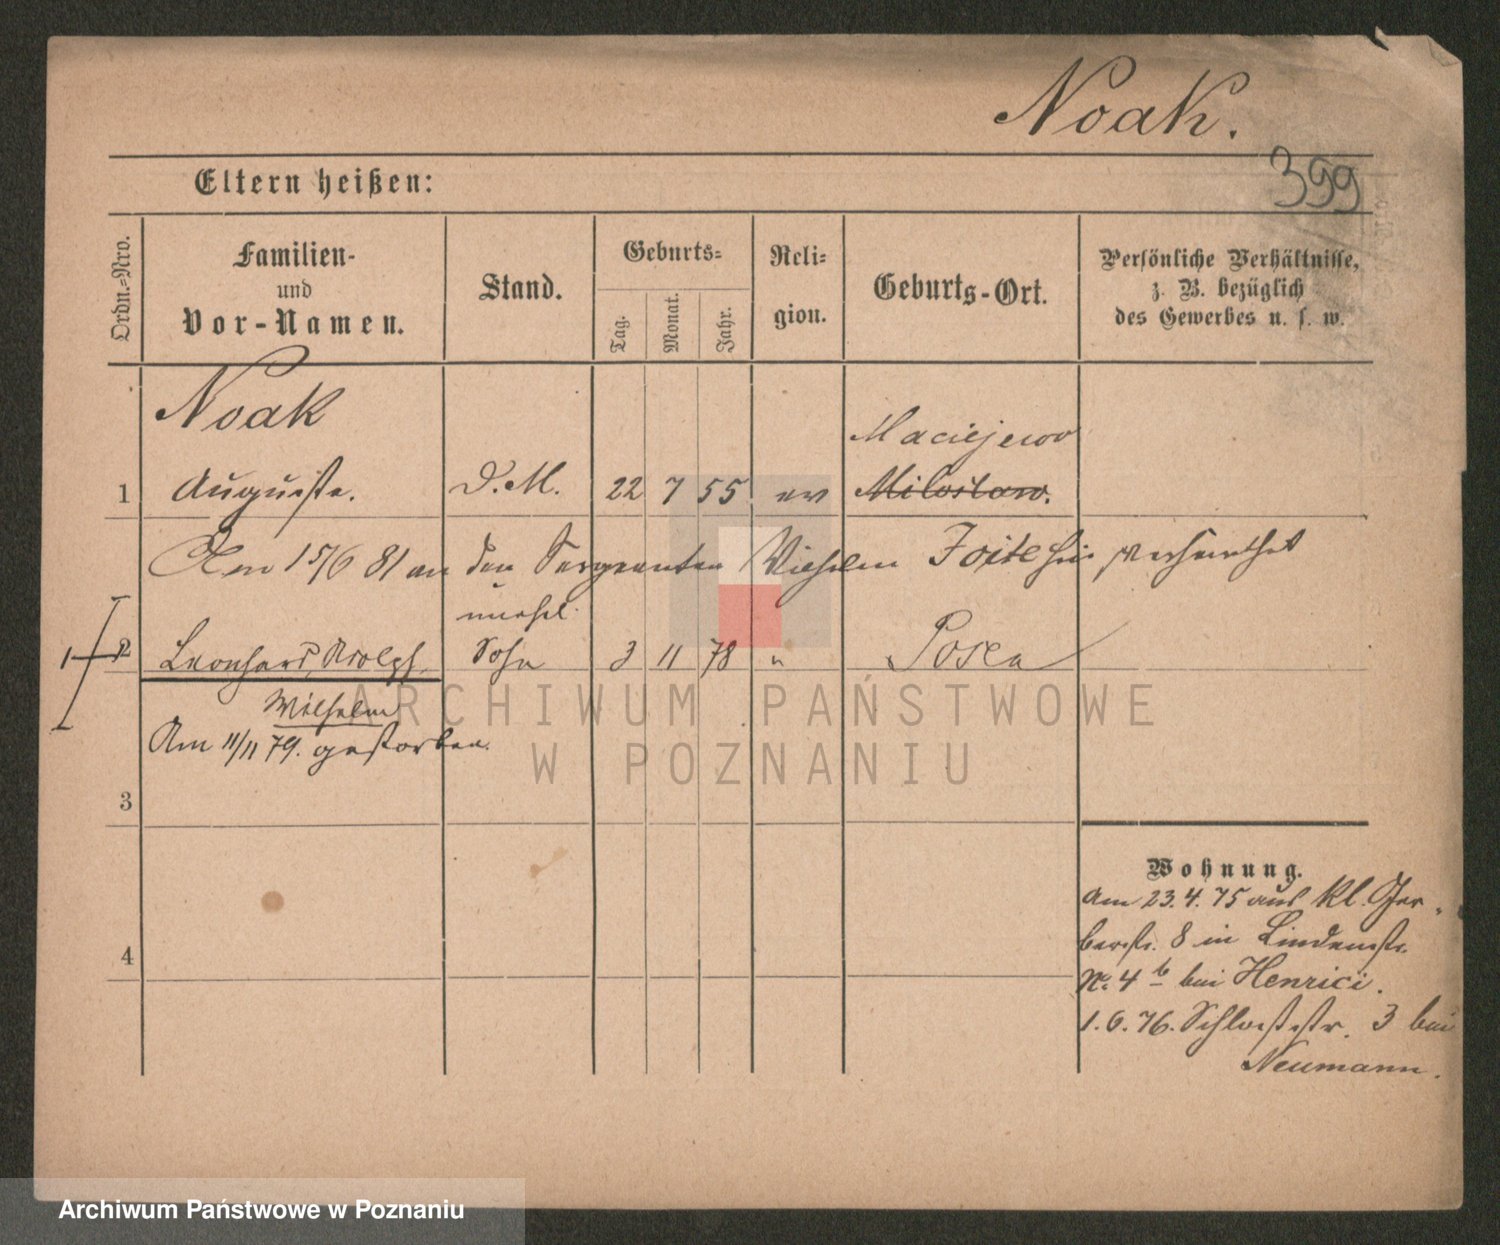 Noak.
399
Eltern heißen:
Ordn.-Nro.
Familien-
und
Vor-Namen.
Stand.
Geburts-
Tag.
Monat.
Jahr.
Reli-
gion.
Geburts-Ort.
Persönliche Verhältnisse,
z. B. bezüglich
des Gewerbes u. s. w.
Noak
Maciejewo
1 Auguste. D. M. 22 7 55 ev Miloslaw.
Am 15/6 81 an den Sergeanten Wilhelm hier verheirathet
unehel.
2 Leonhard Adolph Sohn 3 11 78 " Posen
Wilhelm
Am 11/11 79. gestorben.
3
4
Wohnung.
am 23.4.75 aus kl. Ger-
berstr. 8 in Lindenstr.
No. 4 b bei Henrici.
1.6.76. Schloßstr. 3 bei
Neumann.
ARCHIWUM PAŃSTWOWE
W POZNANIU
Archiwum Państwowe w Poznaniu